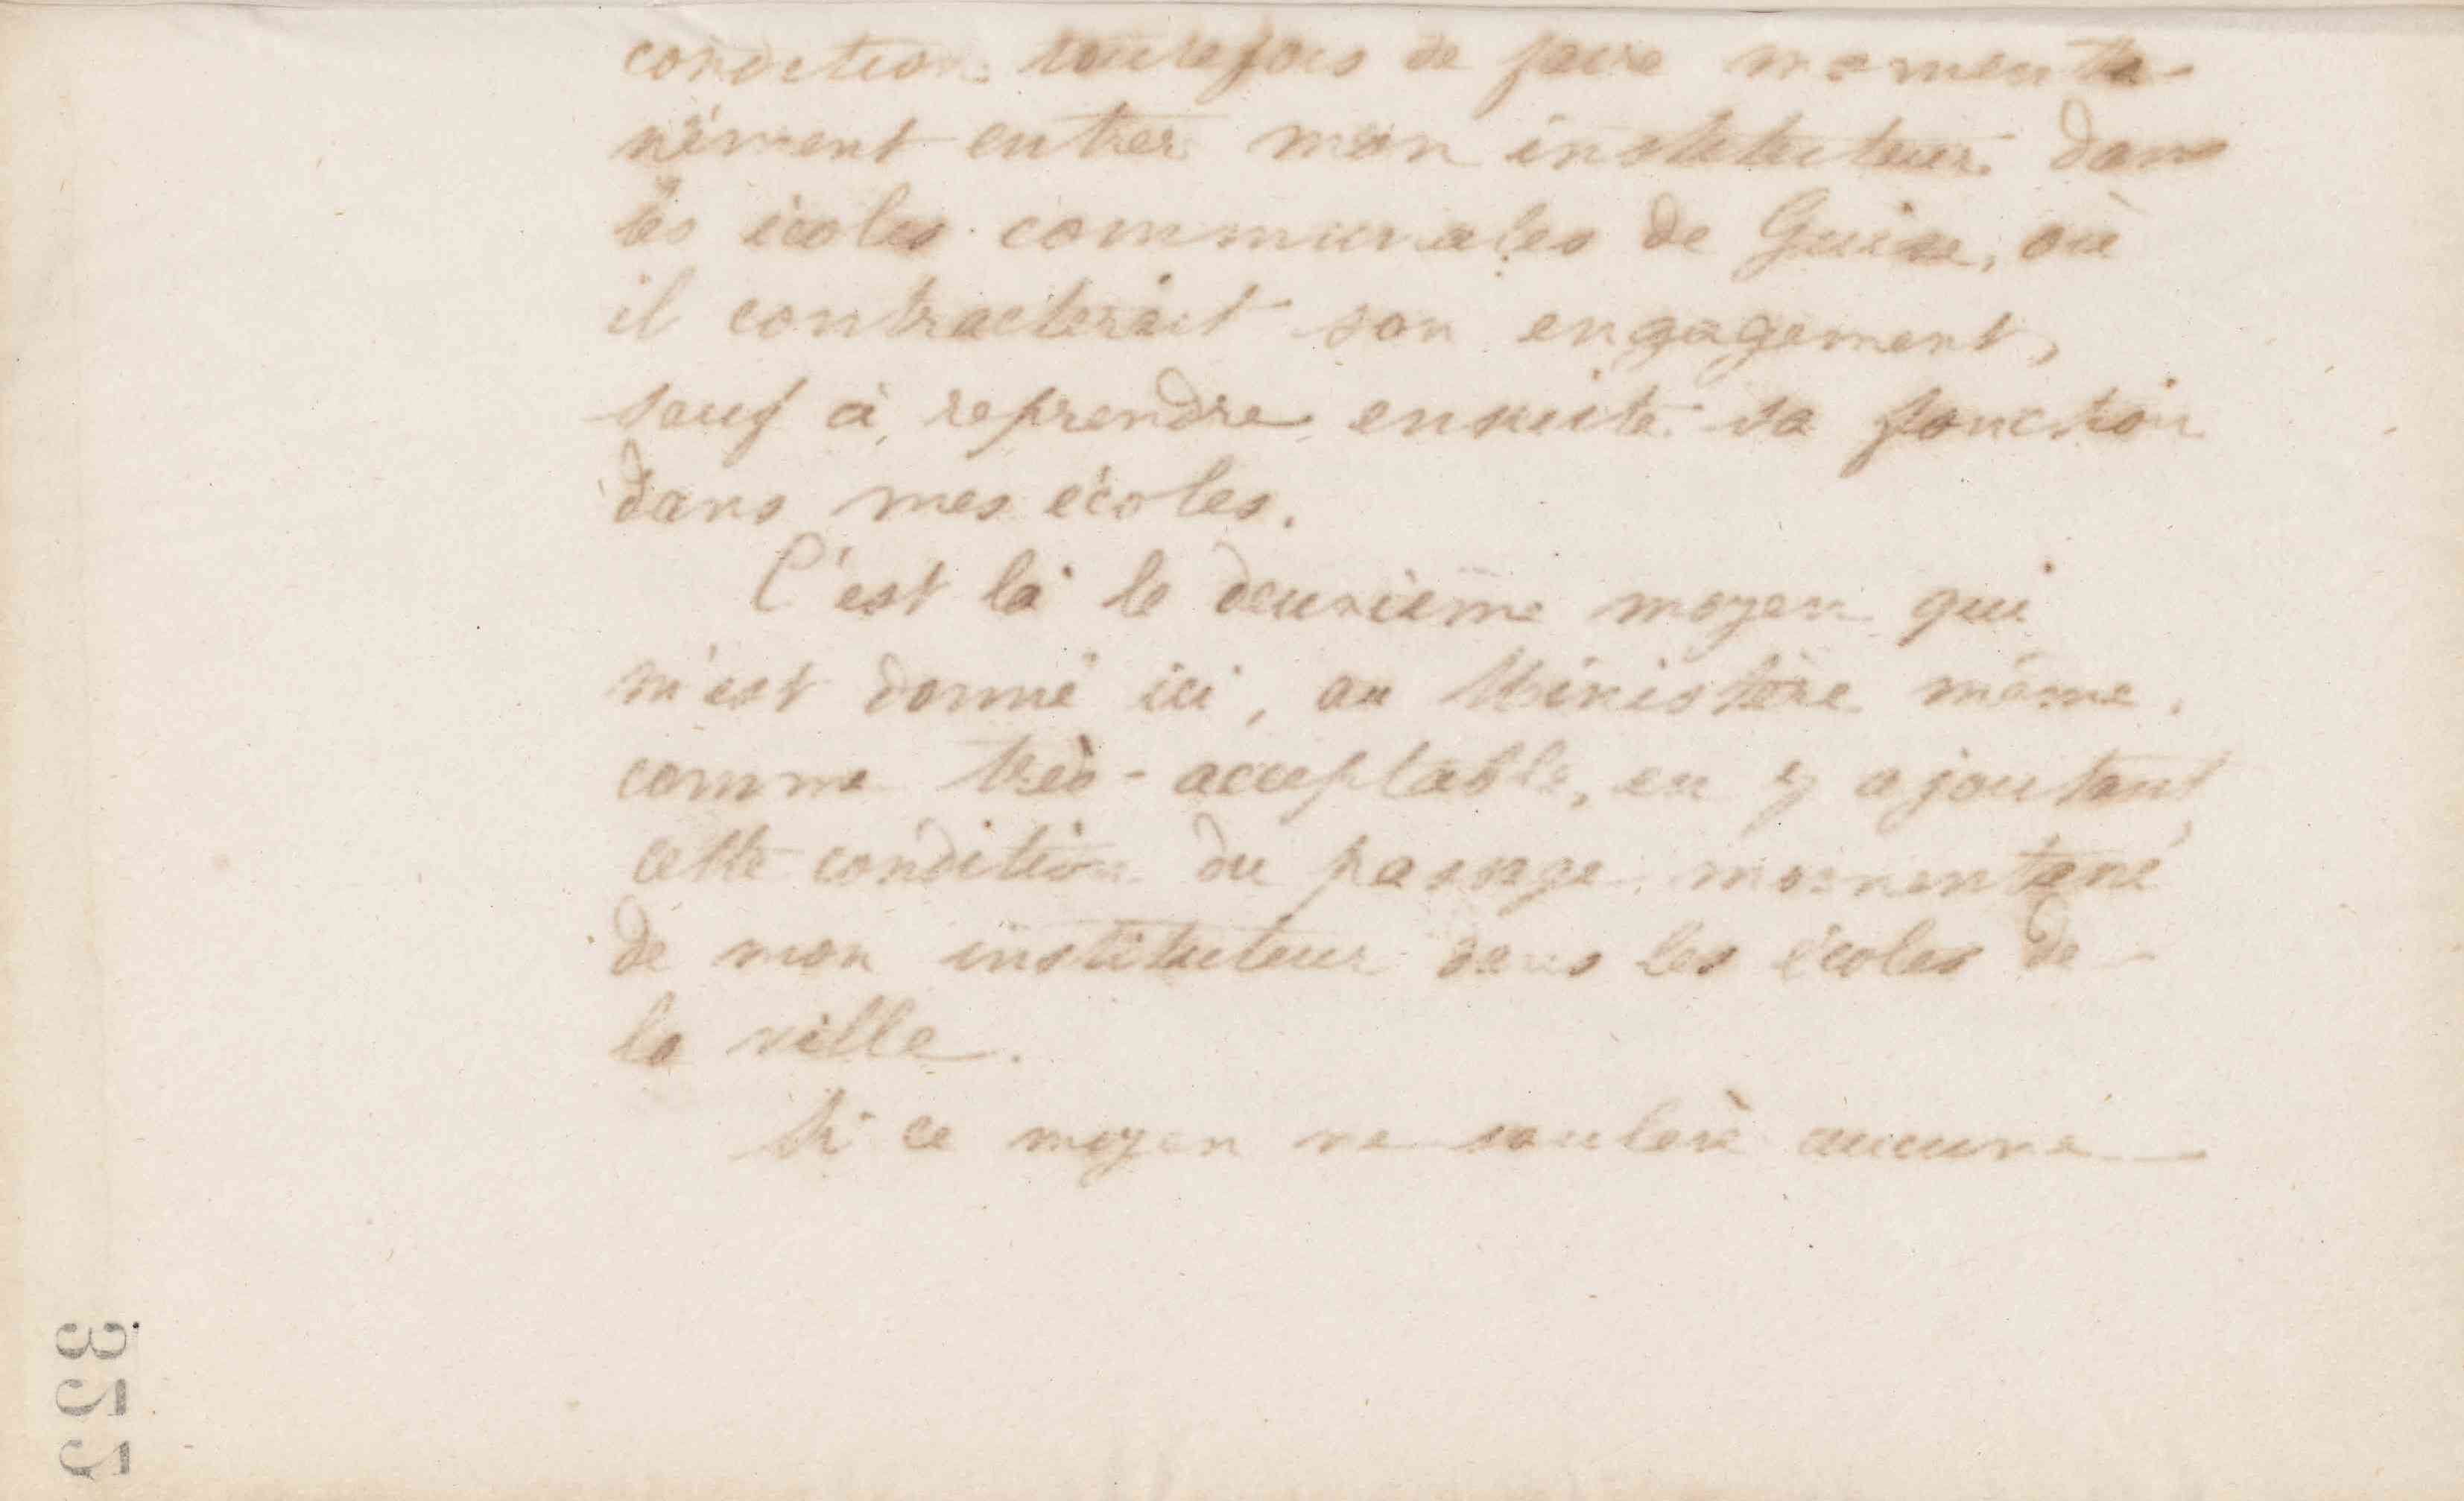 condition toutefois de faire momenta-
nément entrer mon instituteur dans
les écoles communales de Guise, où
il contracterait son engagement,
sauf à reprendre ensuite sa fonction
dans mes écoles.
C'est là le deuxième moyen qui
m'est donné ici, au Ministère même,
comme très-acceptable, en y ajoutant
cette condition du passage momentané
de mon instituteur dans les écoles de
la ville.
Si ce moyen ne soulève aucune
355